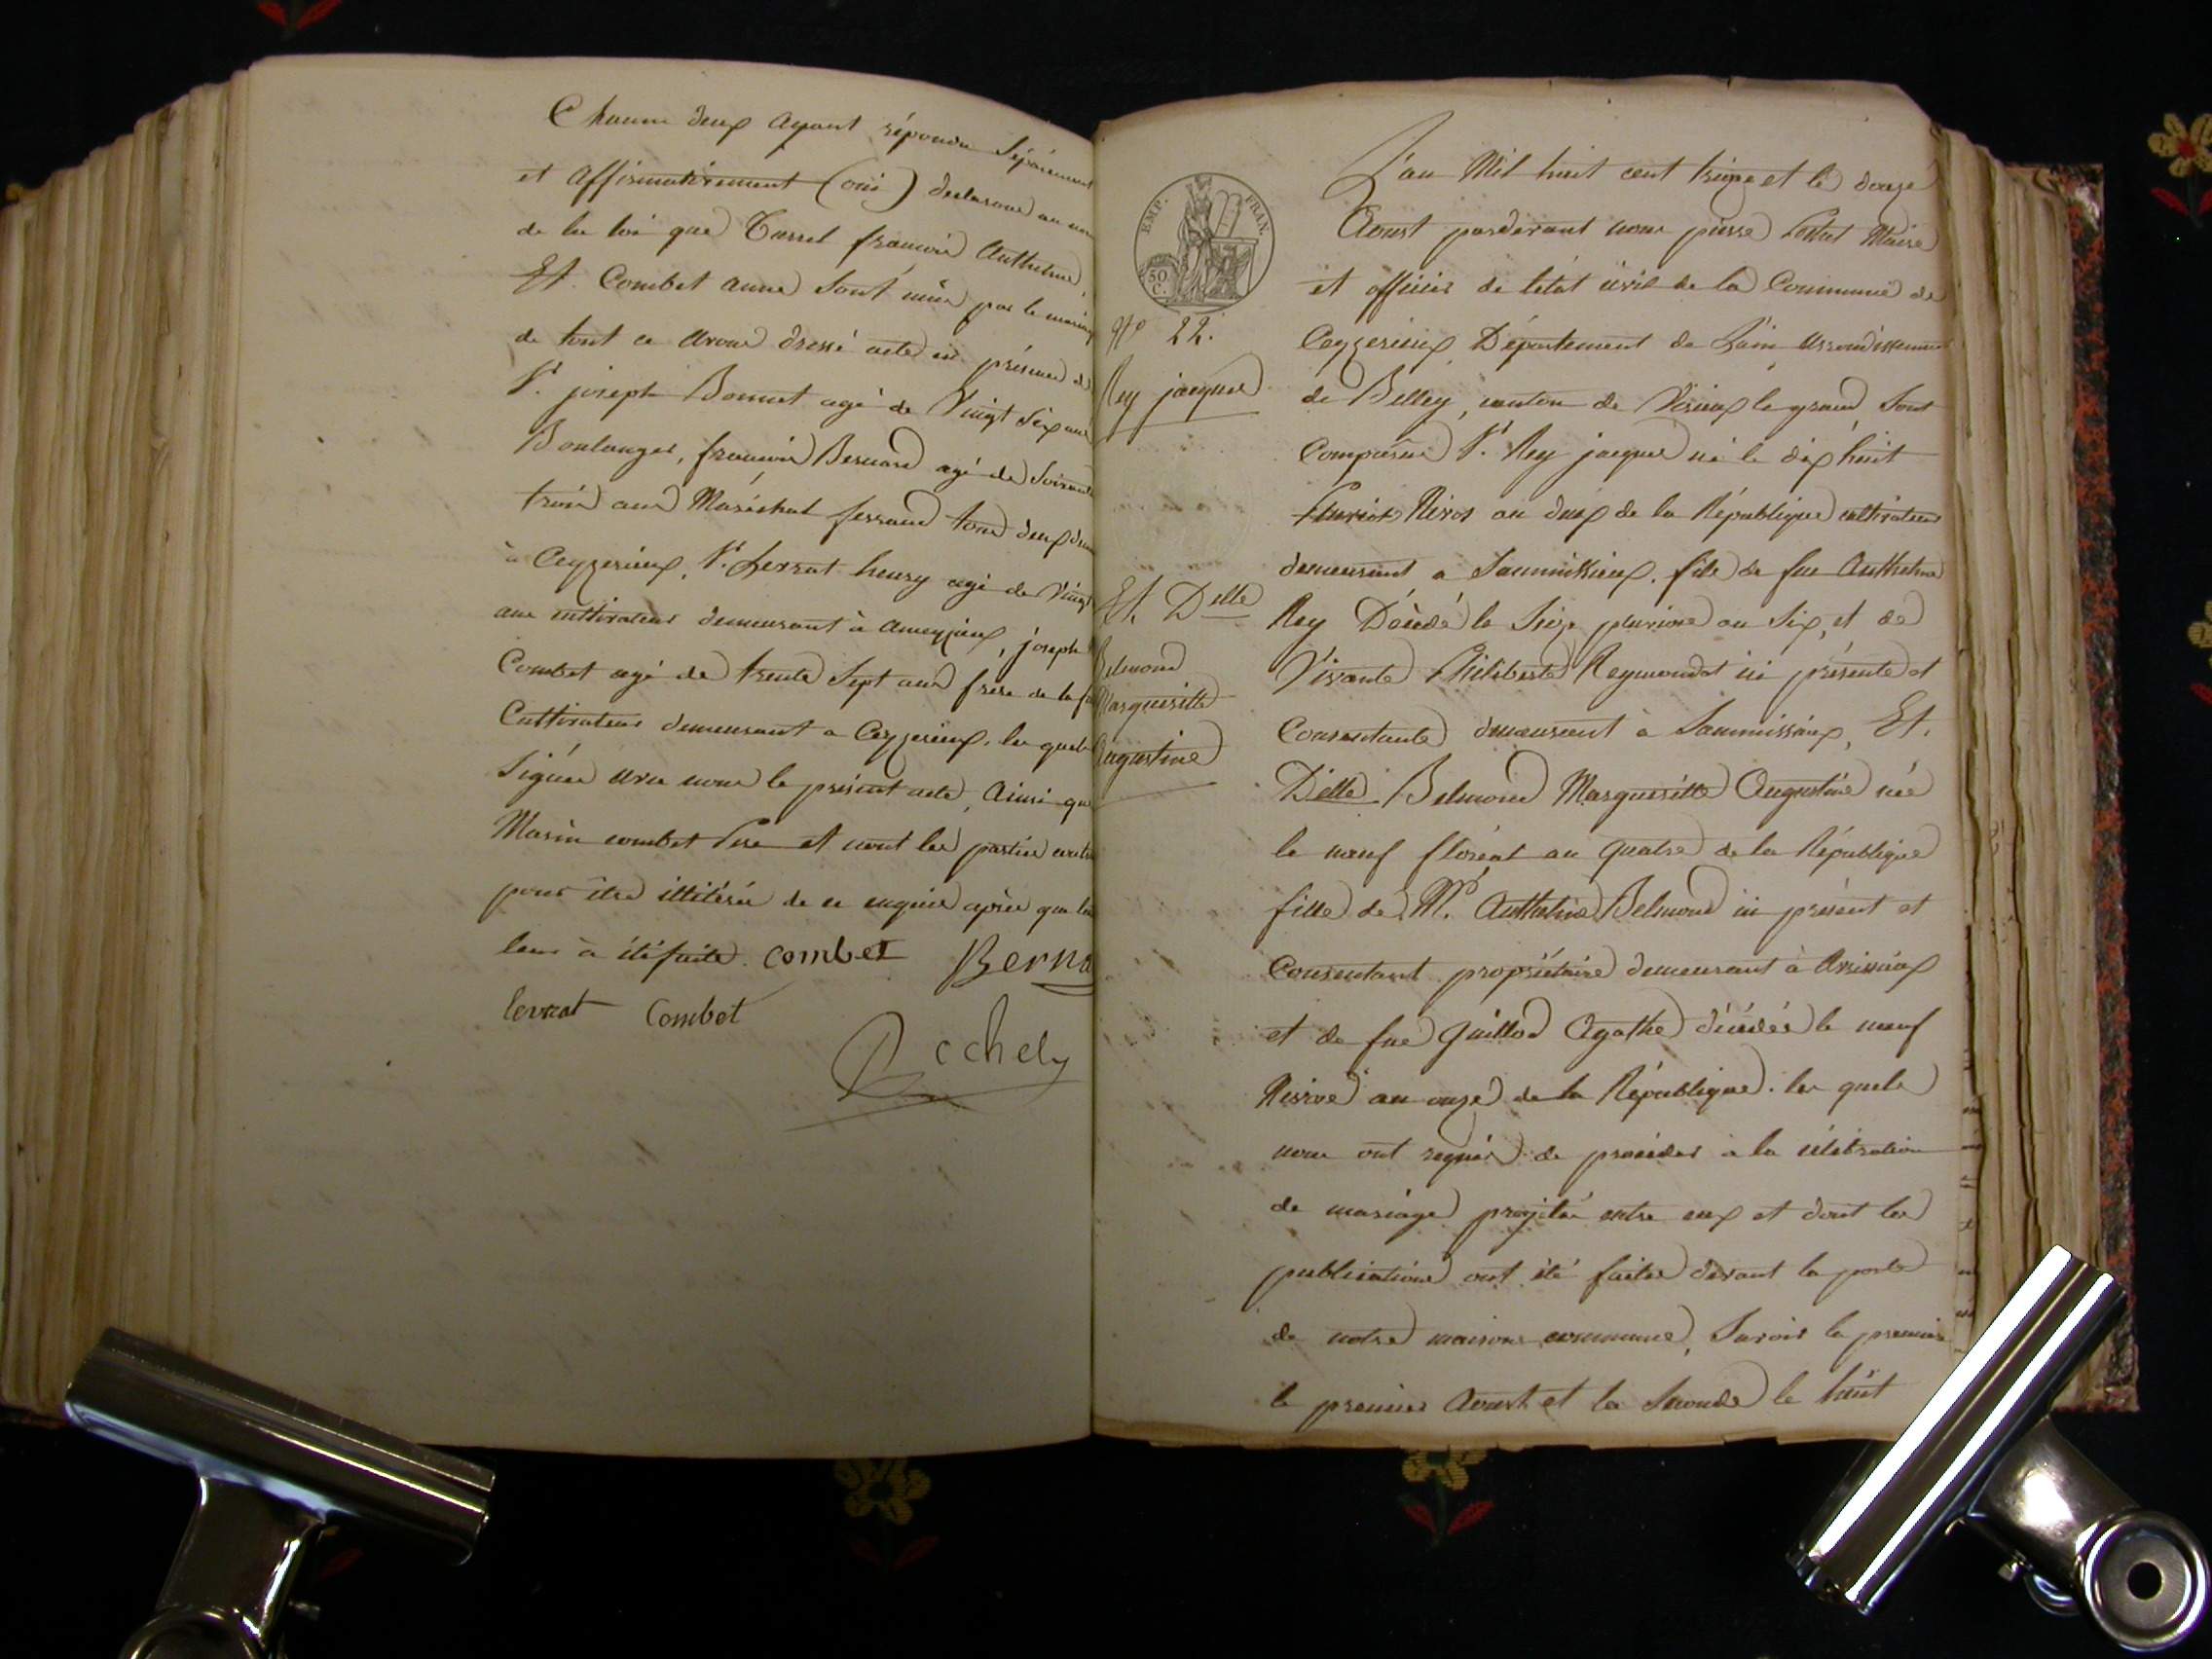 Chacun deux ayant répondu Séparément
et Affirmativement (oui) declarons au nom
de la loi que Curret francois Anthelme
Et. Combet anne Sont unis par le mariag
de tout ce avons dressé acte en présence de
Sr. joseph Bonnet agé de Vingt Six ans
Boulanger, francois Bernard agé de Soixante
trois ans Maréchal ferrand tous deux dem
à Ceyzerieux, Sr. Levrat henry agé de Vingt
ans cultivateur demeurant à Ameyzieux, joseph
Combet agé de trente Sept ans frere de la fu
Cultivateur demeurant a Ceyzerieux. les quels
Signés avec nous le présent acte, Ainsi que
Marin combet Pere et nont les parties contr
pour être illitérés de ce enquis après que lec
leur à été faite. combet Berna
levrat Combet
Rcchely
EMP. FRAN.
50 C.
No 22.
Rey jacques
Et. Delle
Belmond
Margueritte
Augustine
L'an Mil huit cent treize et le douze
Aoust pardevant nous pierre Maire
et officier de letat civil de la Commune de
Ceyzerieux Département de Lain arrondissement
de Belley, canton de Virieux le grand Sont
Comparus Sr. Rey jacques né le dix huit
Nivos an deux de la République cultivateur
demeurant a, fils de feu Anthelme
Rey Décédé le Seize pluviose an Six, et de
Vivante Philiberte Reymondet ici présente et
Consentante demeurant à, Et.
Delle Belmond Margueritte Augustine née
le neuf floréal an quatre de la République
fille de Mr. Anthelme Belmond ici présent et
Consentant propriétaire demeurant à
et de feue Guillod Agathe décédée le neuf
Nivose an onze de la République. les quels
nous ont requis de procéder a la célébration
de mariage projeté entre eux et dont les
publications ont été faites devant la porte
de notre maison commune, Savoir la premiere
le premier Aoust et la Seconde le huit